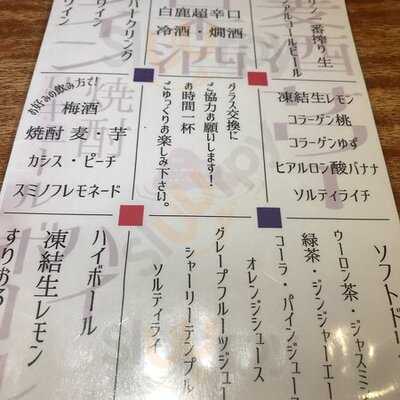 一番搾り 生
アルコールビール
白鹿超辛口
冷酒・燗酒
パークリング
ワイン
ワイン
凍結生レモン
コラーゲン桃
コラーゲンゆず
ヒアルロン酸バナナ
ソルティライチ
グラス交換に
ご協力お願いします!
お時間一杯
ごゆっくりお楽しみ下さい。
お好みの飲み方で!
梅酒
焼酎 麦・芋
カシス・ピーチ
スミノフレモネード
ソフトド
ウーロン茶・ジャスミン
緑茶・ジンジャーエー
コーラ・パインジュース
オレンジジュース
グレープフルーツジュー
シャーリーテンプル
ソルティライ
ハイボール
凍結生レモン
すりおろ